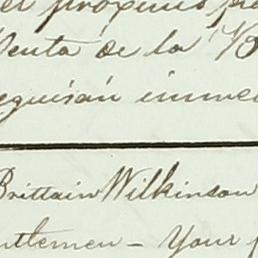 el proximo
Venta de la
eguirán inme
Brittain Wilkinson
ntlemen - Your